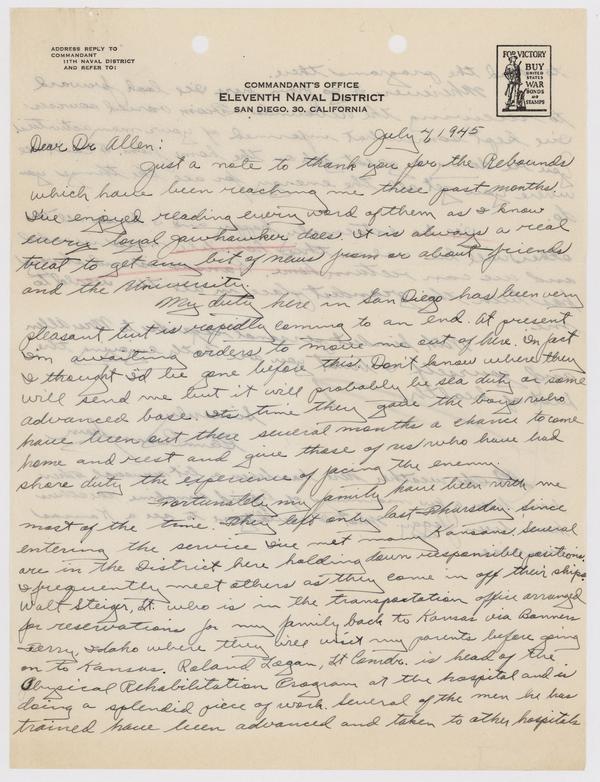 ADDRESS REPLY TO
COMMANDANT
11TH NAVAL DISTRICT
AND REFER TO:
FOR VICTORY
BUY
UNITED
STATES
WAR
BONDS
AND
STAMPS
COMMANDANT'S OFFICE
ELEVENTH NAVAL DISTRICT
SAN DIEGO, 30, CALIFORNIA
July 4, 1945
Dear Dr. Allen:
Just a note to thank you for the Rebounds
which have been reaching me these past months.
I've enjoyed reading every word of them as I know
every loyal Jawhawker does. It is always a real
treat to get any bit of news from or about friends
and the University.
My duty here in San Diego has been very
pleasant but is rapidly coming to an end. At present
I'm awaiting orders to move me out of here. In fact
I thought I'd be gone before this. Don't know where they
will send me but it will probably be sea duty or some
advanced base. Its time they gave the boys who
have been out there several months a chance to come
home and rest and give those of us who have had
shore duty the experience of facing the enemy.
Fortunately my family have been with me
most of the time. They left only last Thursday. Since
entering the service I've met many Kansans. Several
are in the District here holding down responsible positions.
I frequently meet others as they come in off their ships.
Walt Steiger, Lt. who is in the transportation office arranged
for reservations for my family back to Kansas via Bonners
Ferry, Idaho where they will visit my parents before going
on to Kansas. Roland Logan, Lt Comdr. is head of the
Physical Rehabilitation Program at the hospital and is
doing a splendid piece of work. Several of the men he has
trained have been advanced and taken to other hospitals